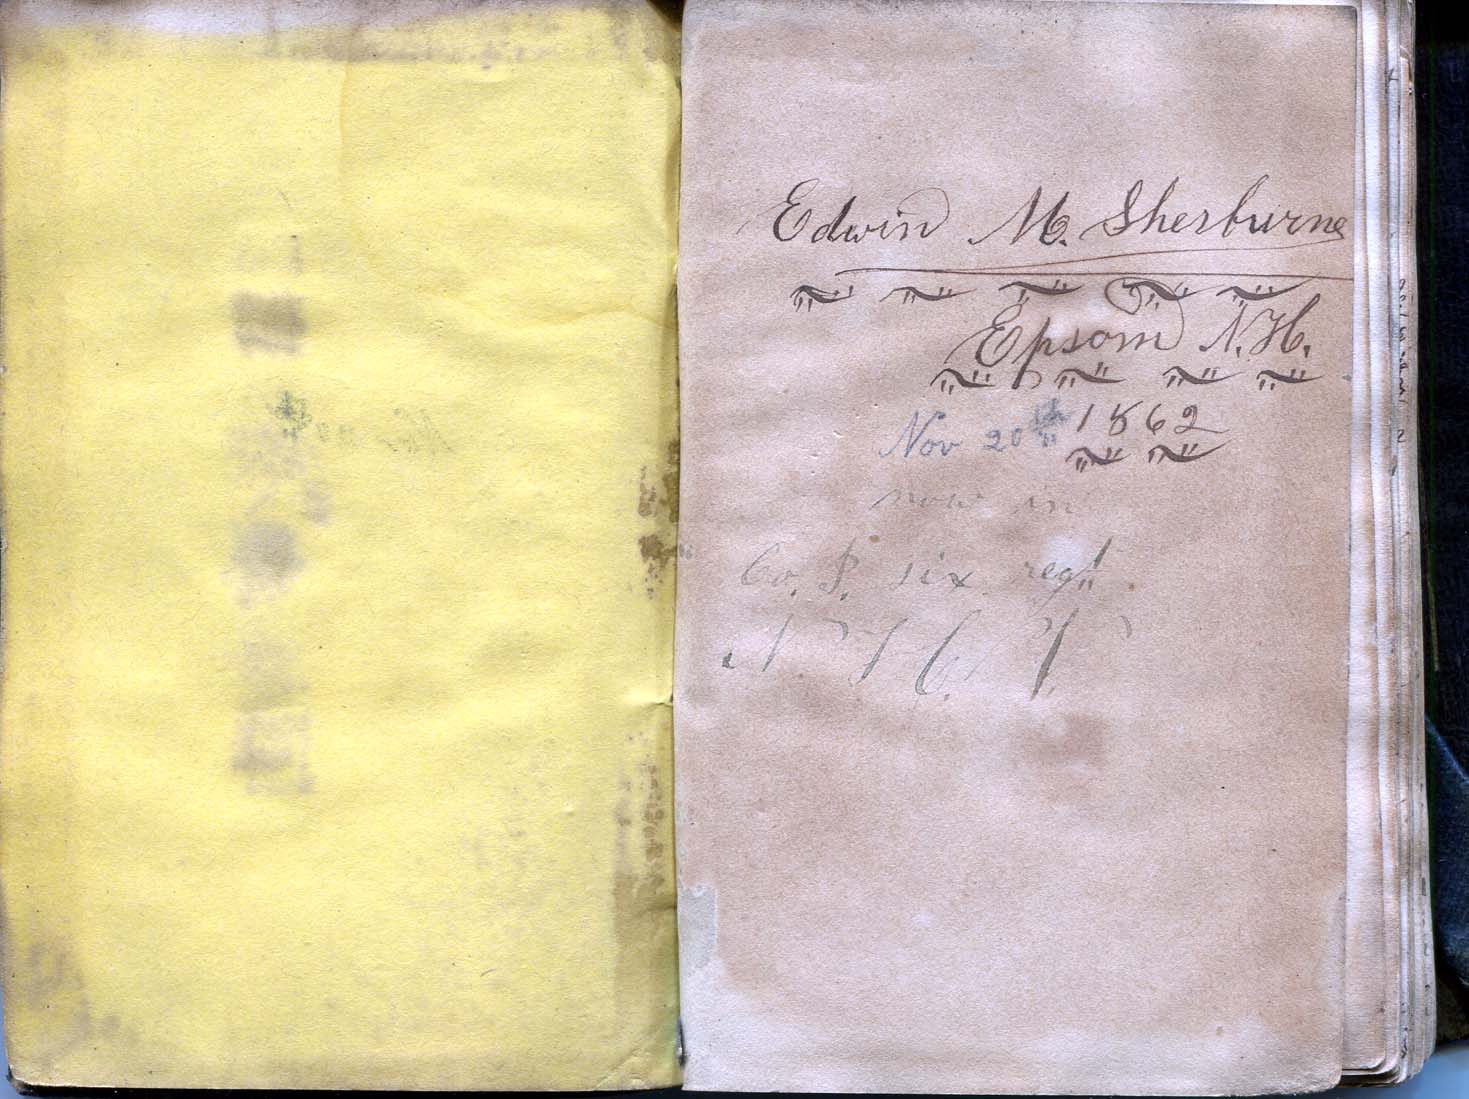 Edwin M. Sherburne
Epsom N.H.
Nov 20th 1862
now in
Co. I. six regt.
N H V